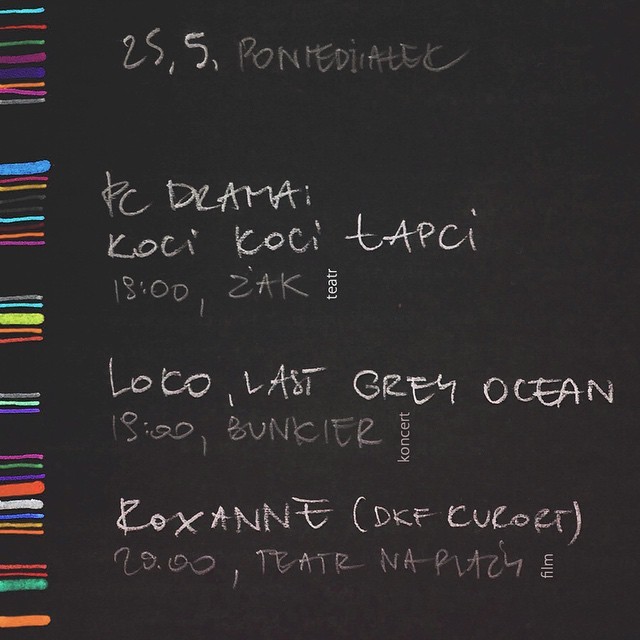 25.5. PONIEDZIAŁEK
PC DRAMA:
KOCI KOCI ŁAPCI
19:00, ŻAK teatr
LOKO, LAST GREY OCEAN
19:00, BUNKIER koncert
ROXANNE (DKF KURORT)
20.00, TEATR NA PLAŻY film